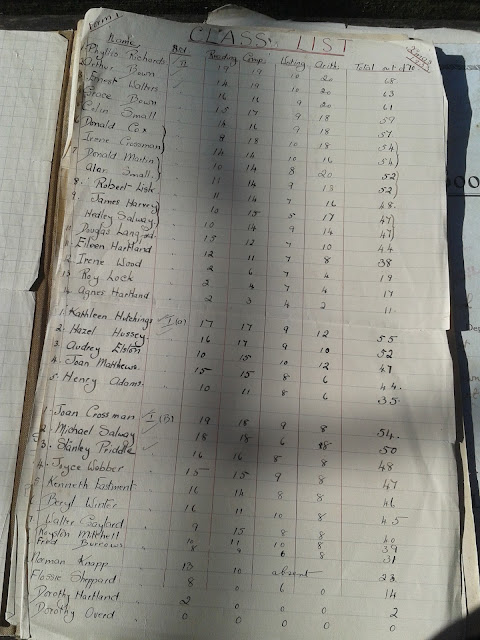 Form 1.
CLASS LIST
Names Reading Comp. Writing Arith. Total out of 70
Phyllis Richards II 19 19 10 20 68
2 Arthur Bown 14 19 10 20 63
3 Ernest Walters 16 16 9 20 61
Grace Bown 15 17 9 18 59
Colin Small 14 16 9 18 57
6 Donald Cox 18 10 18 54
Irene Crossman 14 14 10 16 54
7 Donald Martin 10 14 8 20 52
Alan Small 11 14 9 18 52
8. Robert Lisk 11 14 7 16 48
9. James Harvey 10 15 5 17 47
Hedley Salway 10 14 9 14 47
11 Douglas 15 12 7 10 44
11. Eileen Hartland 12 11 7 8 38
12 Irene Wood 2 6 7 4 19
13 Roy Lock 2 4 7 4 17
14 Agnes Hartland 2 3 4 2 11
1. Kathleen Hutchings I (a) 17 17 9 12 55
2. Hazel Hussey 16 17 9 10 52
3. Audrey Elston 10 15 10 12 47
4. Joan Matthews 15 15 8 6 44
5. Henry Adams 10 11 8 6 35
1. Joan Crossman I (B) 19 18 9 8 54
2. Michael Salway 18 18 6 8 50
3. Stanley Priddle 16 16 8 8 48
4. Joyce Webber 15 15 9 8 47
5 Kenneth Eastment 16 14 8 8 46
6 Beryl Winter 16 11 10 8 45
7 Walter Gaylard 9 15 8 8 40
Royston Mitchell 10 11 10 8 39
Fred Burrows 8 9 6 8 31
Norman Knapp 13 10 absent 23
Flossie Sheppard 8 0 6 0 14
Dorothy Hartland 2 0 0 0 2
Dorothy Overd 0 0 0 0 0